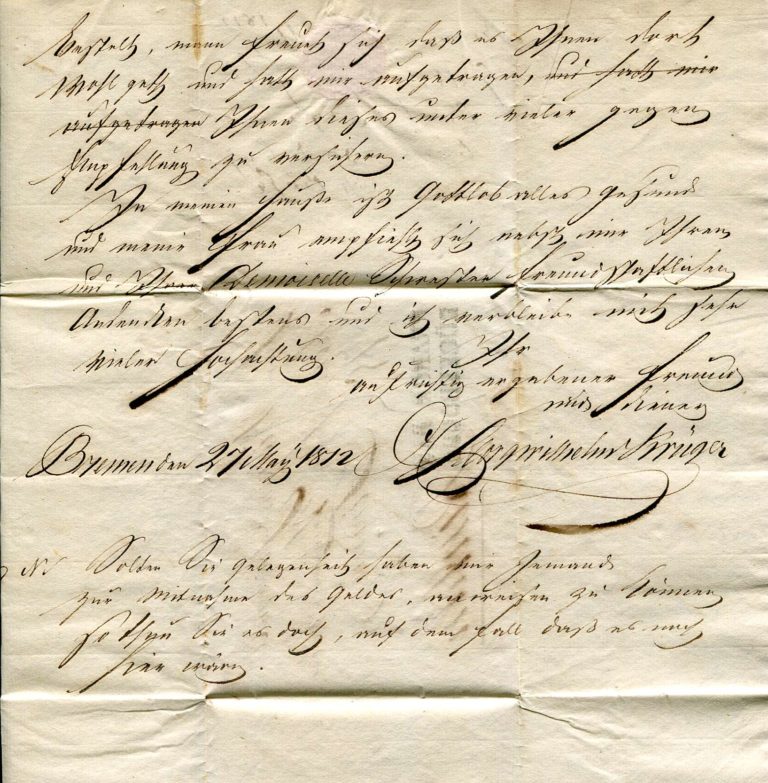 bestelt, mann freuet sich daß es Ihnen dort
Wohl geth und hatt mir aufgetragen, und hatt mir
aufgetragen Ihnen dieses unter vieler gegen
Empfehlung zu versichern.
In meinen Hauße ist Gottlob alles gesund
und meine Frau empfiehlt sich nebst mir Ihren
und Ihrer Demoiselle Schwester freundschaftlichen
Andencken bestens und ich verbleibe mit sehr
vieler Hochachtung. Ihr
aufrichtig ergebener Freund
und Diener
Bremen den 27 May 1812 Wilhelm Krüger
NB Solten Sie gelegenheit haben mir Jemand
zur Mitnahme des Geldes, anweisen zu können
so thun Sie es doch, auf dem fall daß es noch
hier wäre.